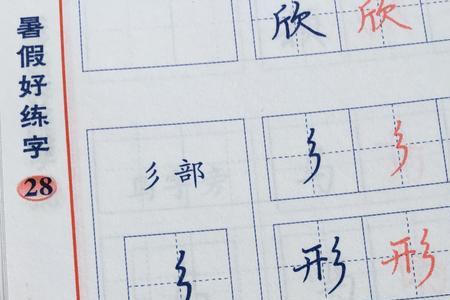 暑假好练字
28
欣 欣
彡部 彡 彡
彡 形 形